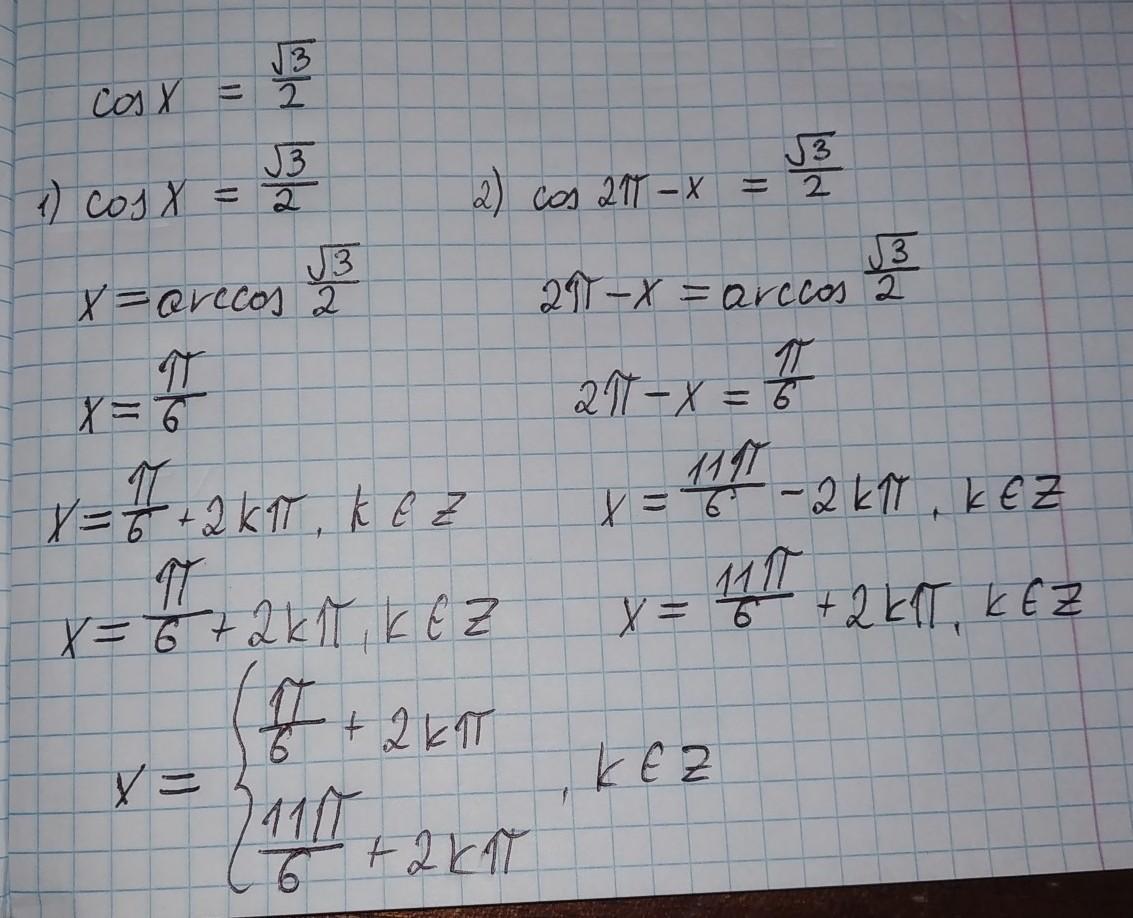 cos x = √3/2
1) cos x = √3/2
x = arccos √3/2
x = π/6
x = π/6 + 2kπ, k ∈ Z
x = π/6 + 2kπ, k ∈ Z
2) cos 2π - x = √3/2
2π - x = arccos √3/2
2π - x = π/6
x = 11π/6 - 2kπ, k ∈ Z
x = 11π/6 + 2kπ, k ∈ Z
x = { π/6 + 2kπ
11π/6 + 2kπ , k ∈ Z